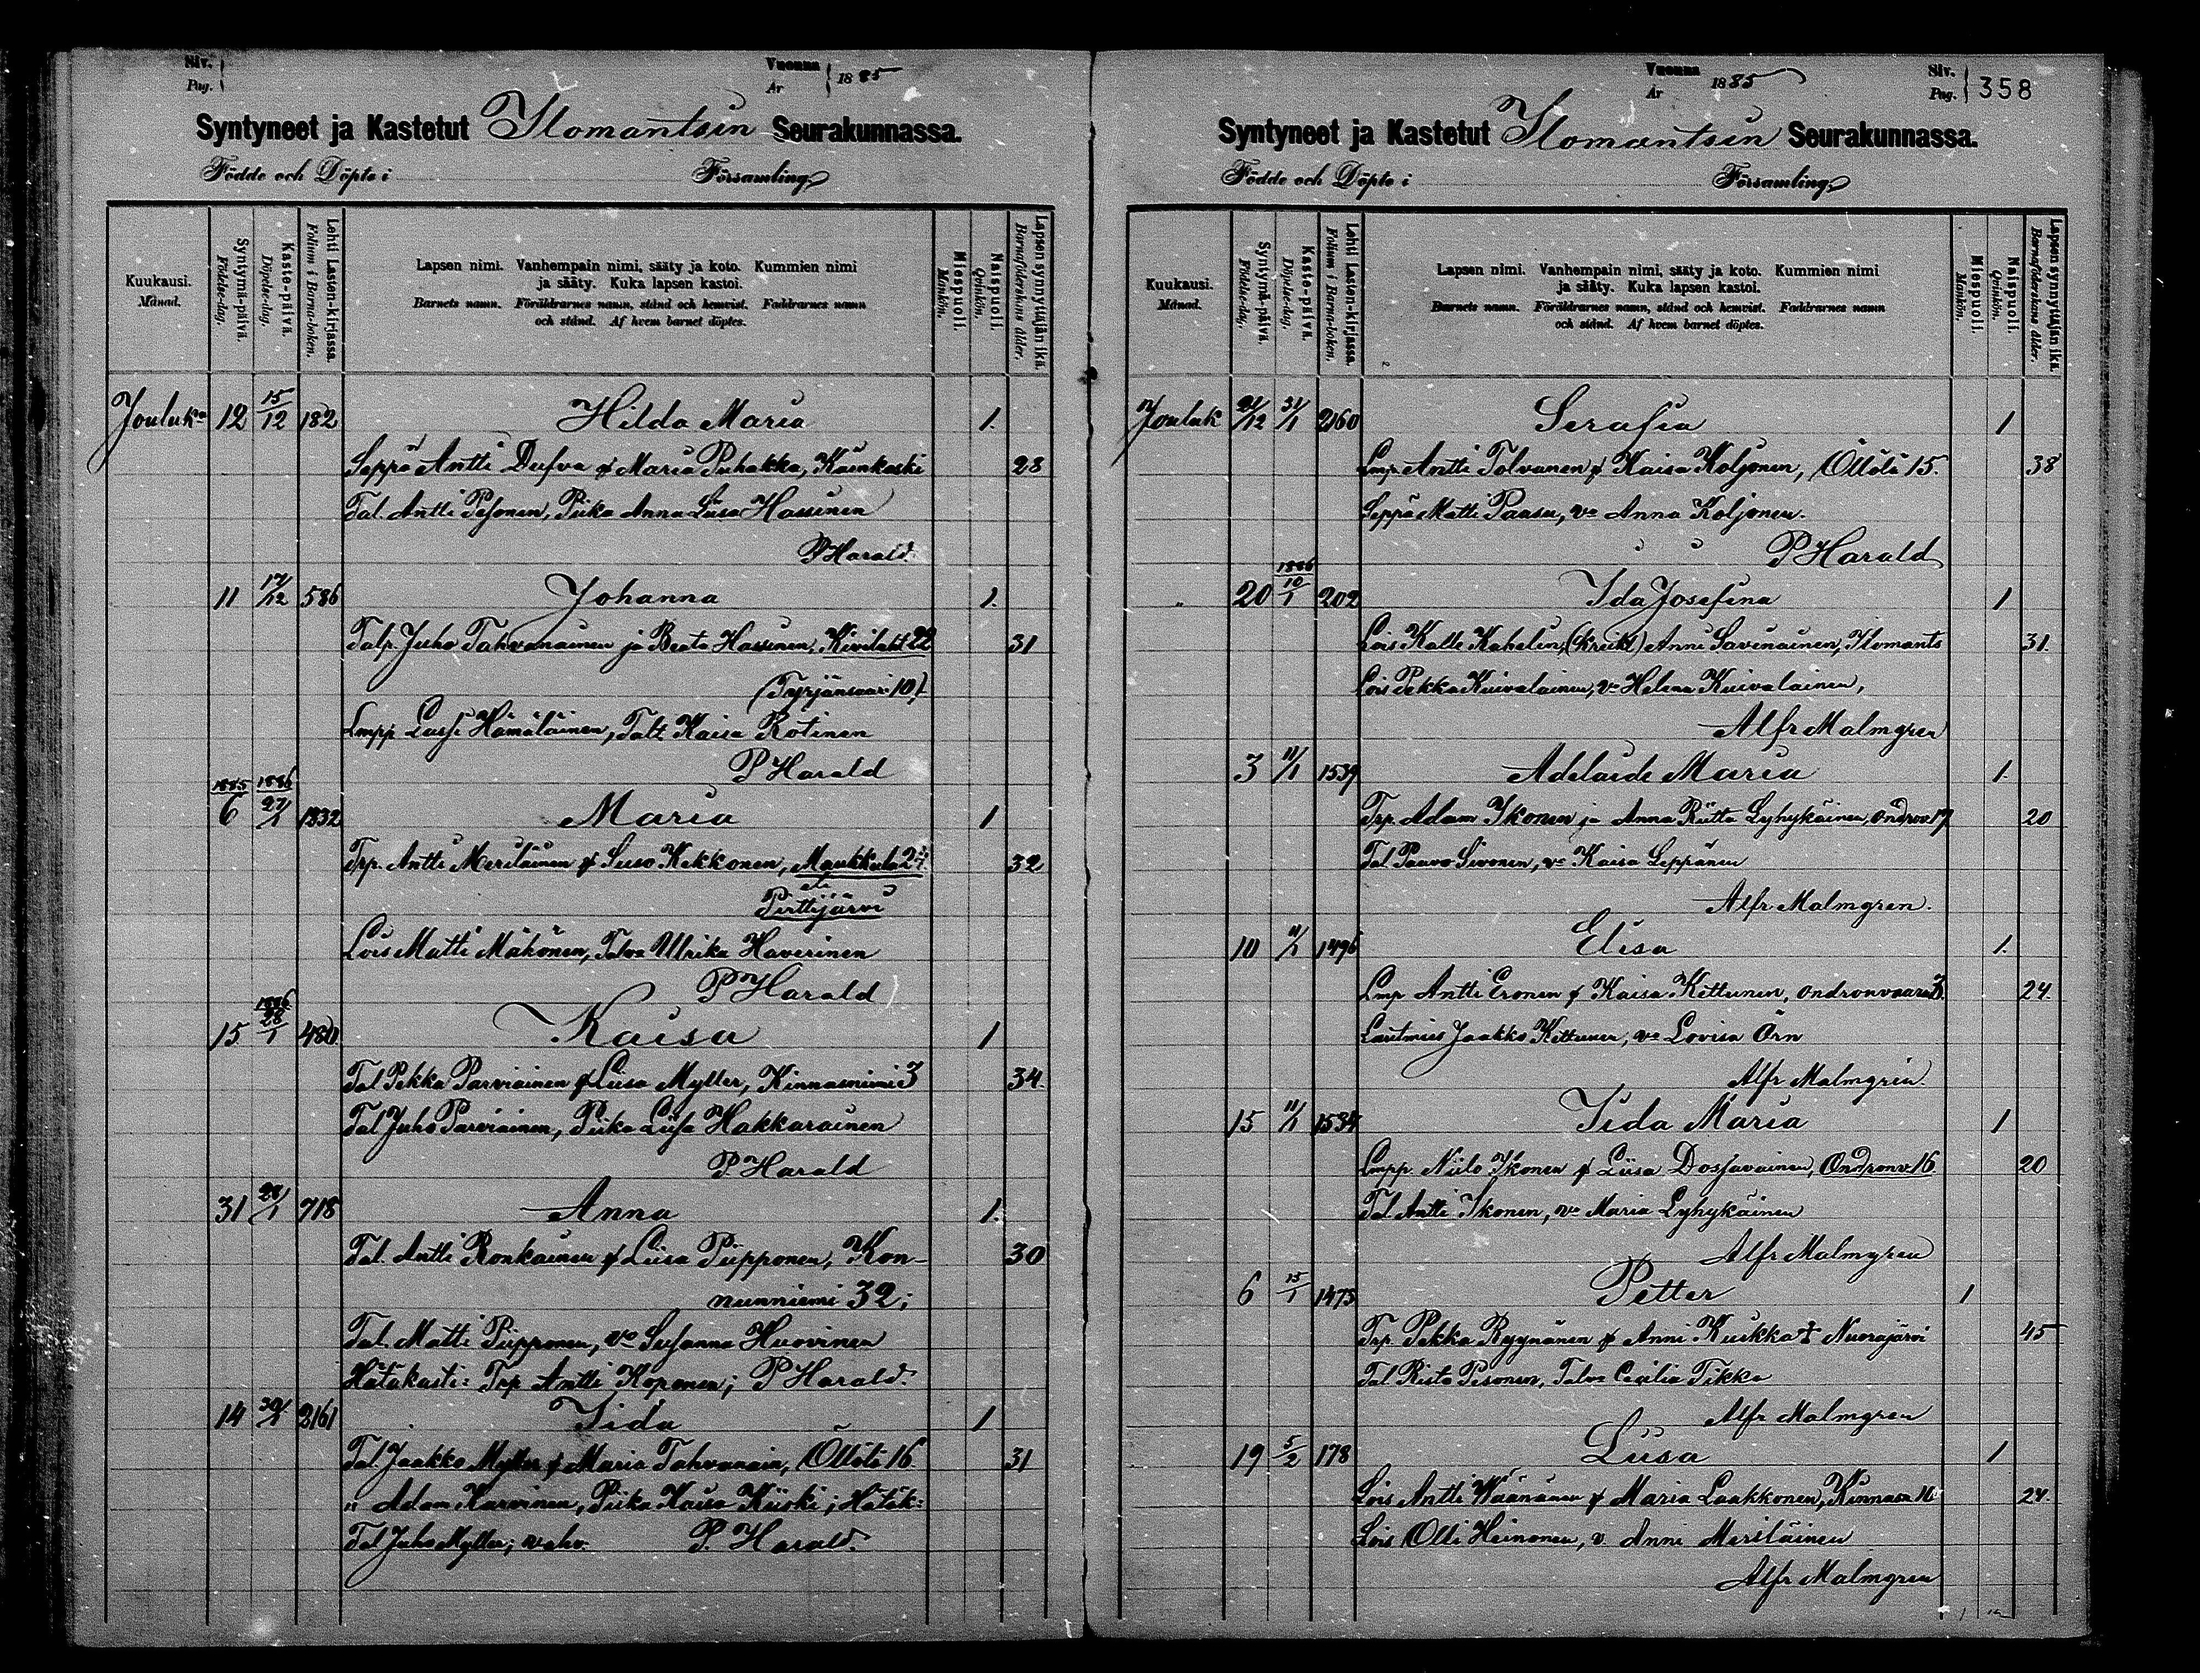 Siv.
Pag.
Vuonna
År
1885
Syntyneet ja Kastetut Ilomantsin Seurakunnassa.
Födde och Döpte i Församling
Kuukausi.
Månad.
Syntymä-päivä.
Födelse-dag.
Kaste-päivä.
Döpelse-dag.
Lehti Lasten-kirjassa.
Folium i Barna-boken.
Lapsen nimi. Vanhempain nimi, sääty ja koto. Kummien nimi
ja sääty. Kuka lapsen kastoi.
Barnets namn. Föräldrarnes namn, stånd och hemvist. Faddrarnes namn
och stånd. Af hvem barnet döptes.
Miespuoli.
Mankön.
Naispuoli.
Qvinkön.
Lapsen synnyttäjän ikä.
Barnaföderskans ålder.
Jouluk. 12 15/12 182 Hilda Maria 1.
Seppä Antti Dufva & Maria Puhakka, Käenkoski 28
Tal. Antti Pesonen, Piika Anna Liisa Hassinen
P Harald.
11 17/12 586 Johanna 1.
Talp. Juho Tahvanainen ja Beata Hassinen, Kivilaht 22 31
(Tyrjänsaari 10)
Lmpp. Lassi Hämäläinen, Taltr Kaisa Rotinen
P Harald
1885 1886
6 27/1 1332 Maria 1
Trp. Antti Meriläinen & Suso Kekkonen, Maukkula 24 32
eli
Pirttijärvi
Lois Matti Mähönen, Talva Ulrika Haverinen
P Harald
1886
15 28/1 480 Kaisa 1
Tal Pekka Parviainen & Liisa Myller, Kinnasniemi 3 34.
Tal Juho Parviainen, Piika Liisa Hakkarainen
P Harald
31 28/1 718 Anna 1.
Tal. Antti Ronkainen & Liisa Piipponen, Kon- 30
nunniemi 32;
Tal. Matti Piipponen, va Susanna Huovinen
Hätäkasti: Trp Antti Koponen; P Harald.
14 30/1 2161 Iida 1
Tal Jaakko Myller & Maria Tahvanain, Öllölä 16 31
" Adam Karvinen, Piika Kaisa Kiiski; Hätäk:
Tal Juho Myller; vahv. P. Harald.
Vuonna
År
1885
Siv.
Pag.
358
Syntyneet ja Kastetut Ilomantsin Seurakunnassa.
Födde och Döpte i Församling
Kuukausi.
Månad.
Syntymä-päivä.
Födelse-dag.
Kaste-päivä.
Döpelse-dag.
Lehti Lasten-kirjassa.
Folium i Barna-boken.
Lapsen nimi. Vanhempain nimi, sääty ja koto. Kummien nimi
ja sääty. Kuka lapsen kastoi.
Barnets namn. Föräldrarnes namn, stånd och hemvist. Faddrarnes namn
och stånd. Af hvem barnet döptes.
Miespuoli.
Mankön.
Naispuoli.
Qvinkön.
Lapsen synnyttäjän ikä.
Barnaföderskans ålder.
Jouluk 21/12 31/1 2160 Serafia 1
Lmp. Antti Tolvanen & Kaisa Koljonen, Öllölä 15. 38
Seppä Matti Paasu, va Anna Koljonen.
P Harald
1886
" 20 10/1 202 Ida Josefina 1
Lois Kalle Kahelin, (Kreikl) Anni Savinainen, Ilomants 31.
Lois Pekka Kuivalainen, va Helena Kuivalainen,
Alfr Malmgren
3 11/1 1539 Adelaide Maria 1.
Trp. Adam Ikonen ja Anna Riitta Lyhykäinen, Ondronv 17 20
Tal Paavo Sivonen, va Kaisa Leppänen
Alfr Malmgren.
10 11/1 1496 Elisa 1.
Lmp Antti Eronen & Kaisa Kettunen, Ondronvaara 3. 24.
Lautmies Jaakko Kettunen, va Lovisa Örn
Alfr Malmgren.
15 11/1 1534 Iida Maria 1
Lmpp. Niilo Ikonen & Liisa Dosjavainen, Ondronv 16. 20
Tal. Antti Ikonen, va Maria Lyhykäinen
Alfr Malmgren
6 15/1 1475 Petter 1
Trp. Pekka Ryynänen & Anni Kuikka † Nuorajärvi 45
Tal Risto Pesonen, Talva Cecilia Tikka
Alfr Malmgren
19 5/2 178 Liisa 1
Lois Antti Wäänänen & Maria Laakkonen, Kinnasn 16 24.
Lois Olli Heinonen, v. Anni Meriläinen
Alfr Malmgren